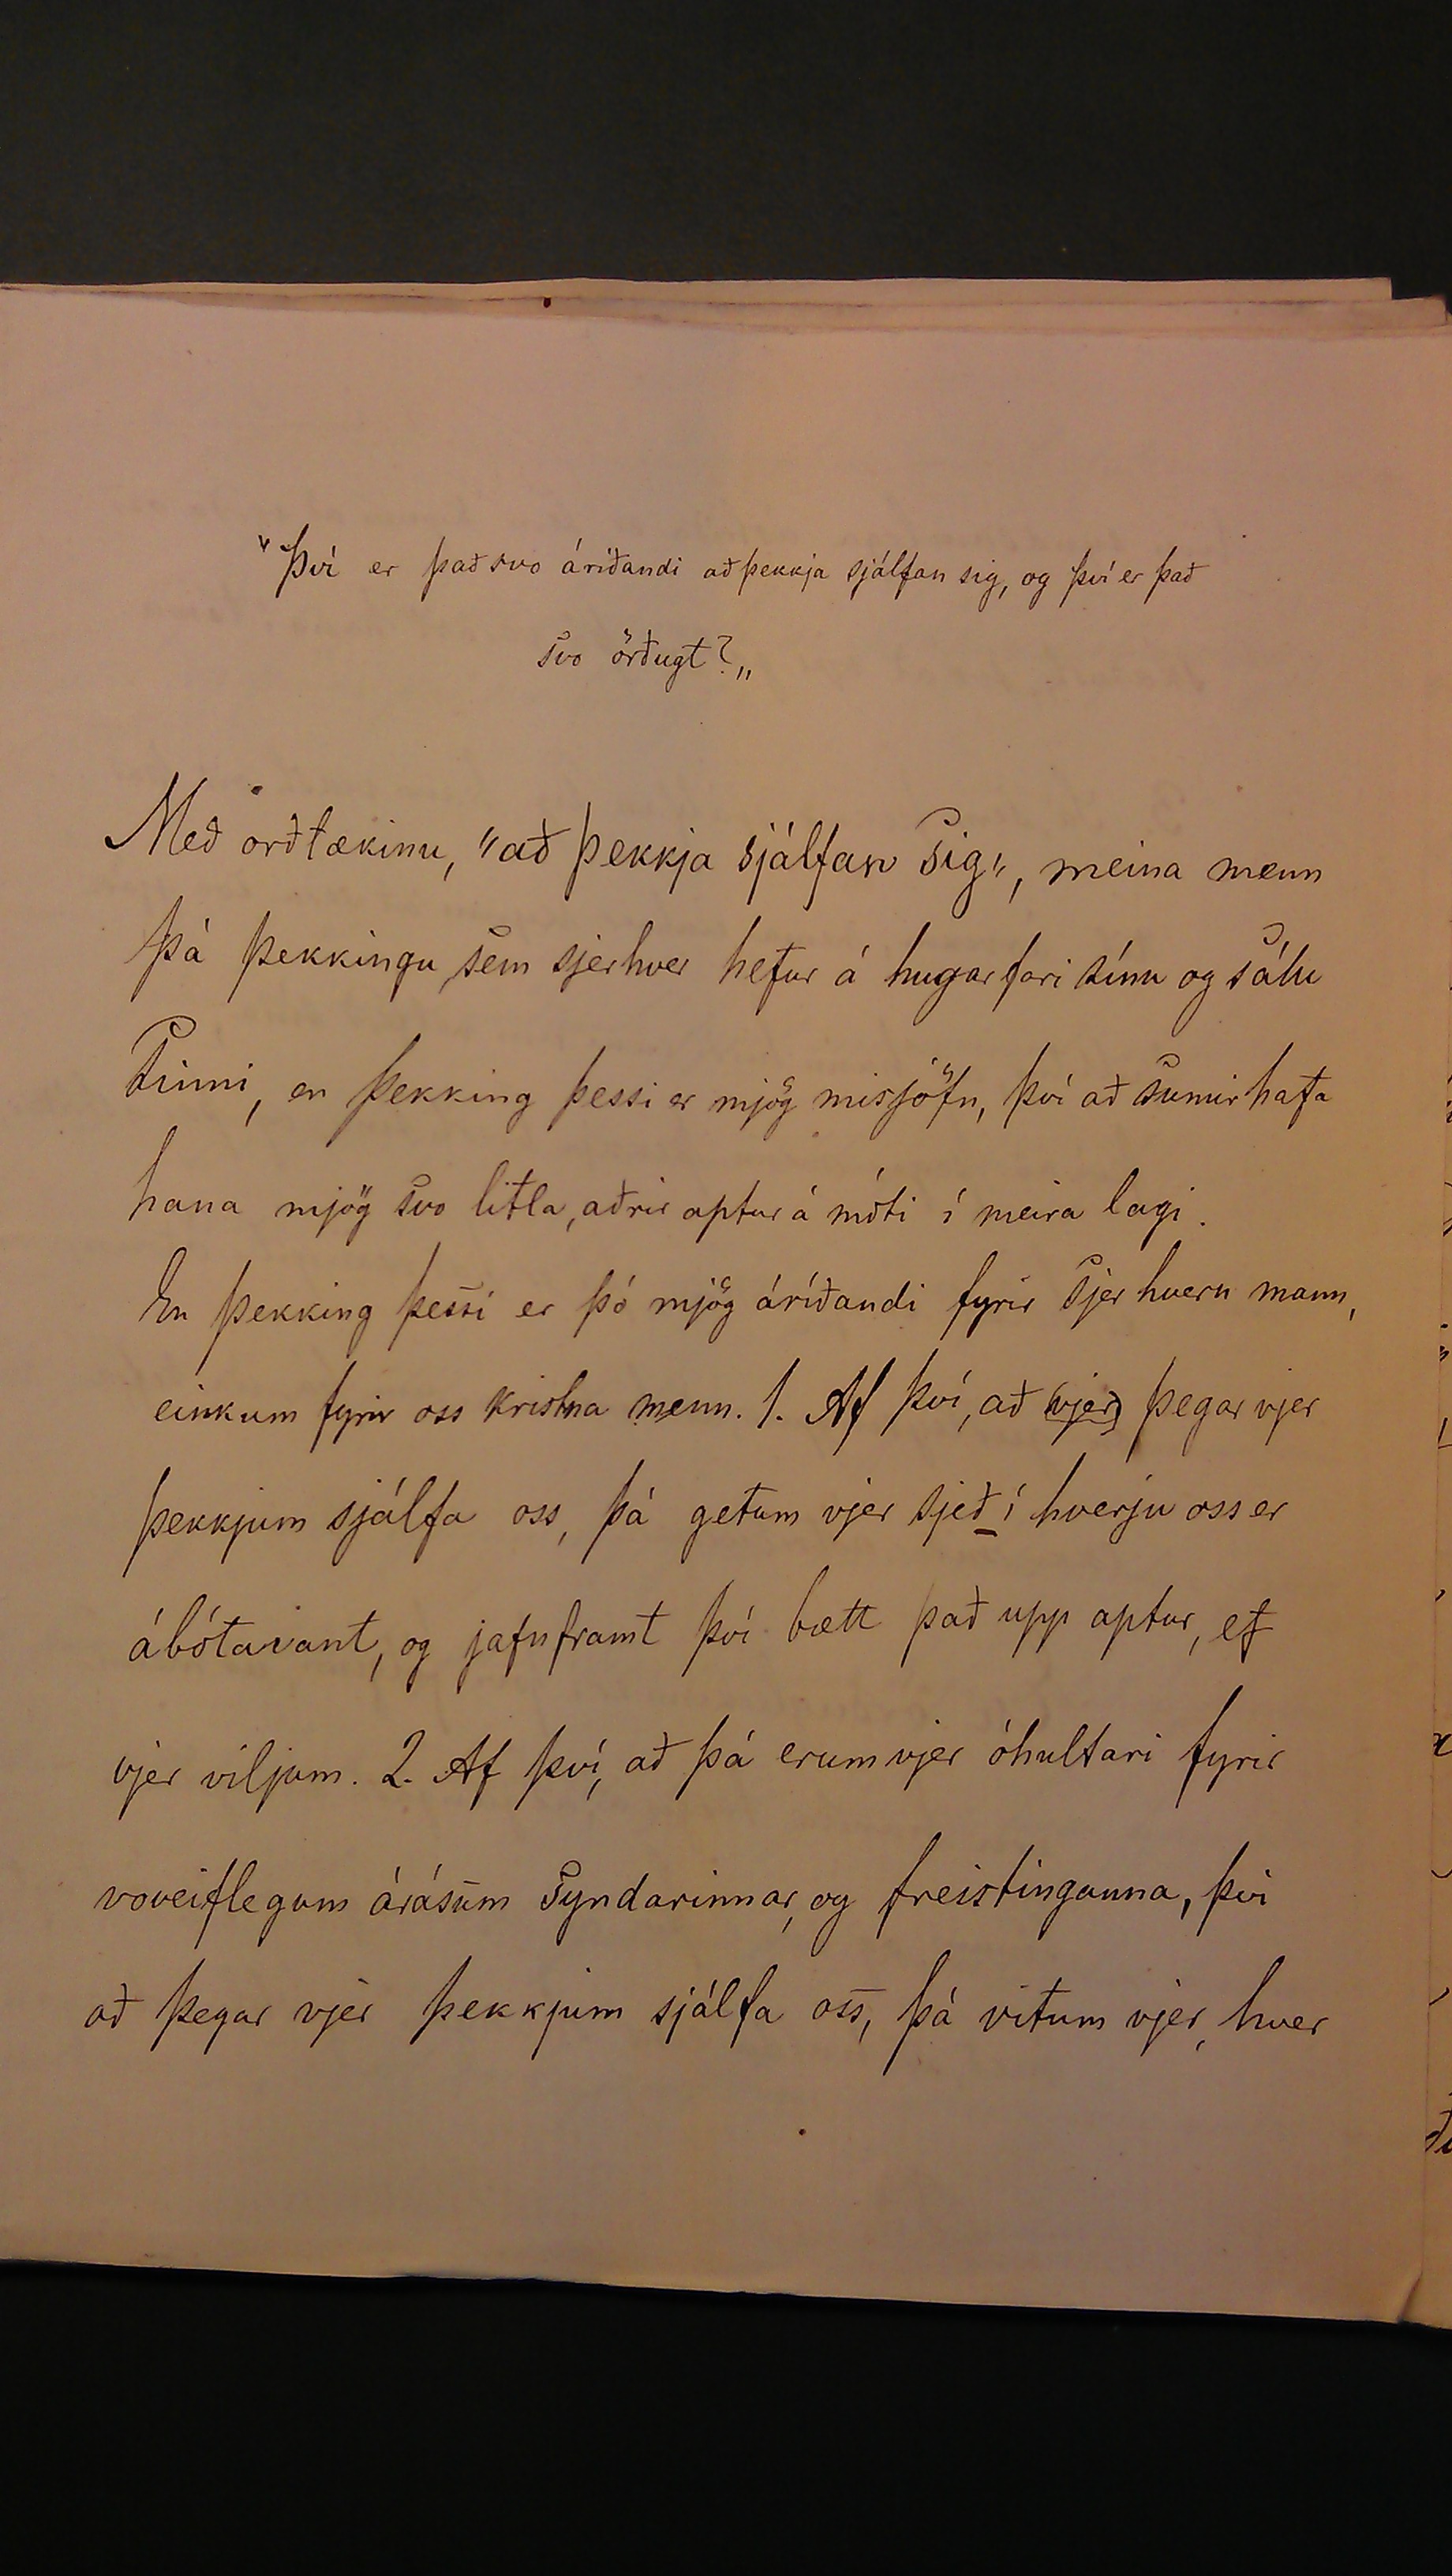 "Því er það svo áríðandi að þekkja sjálfan sig, og því er það
svo örðugt?„
Með orðtækinu, "að þekkja sjálfan sig", meina menn
þá þekkingu, sem sjerhver hefur á hugarfari sínu og sálu
sinni, en þekking þessi er mjög misjöfn, því að sumir hafa
hana mjög svo litla, aðrir aptur á móti í meira lagi.
En þekking þessi er þó mjög áríðandi fyrir sjerhvern mann,
einkum fyrir oss kristna menn. 1. Af því, að (vjer) þegar vjer
þekkjum sjálfa oss, þá getum vjer sjeð í hverju oss er
ábótavant, og jafnframt því bætt það upp aptur, ef
vjer viljum. 2. Af því, að þá erum vjer óhultari fyrir
voveiflegum árásum syndarinnar, og freistinganna, því
að þegar vjer þekkjum sjálfa oss, þá vitum vjer, hver